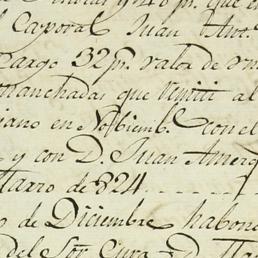 y 40 p.s que en
l Caporal Juan Anto.
cargo 32 p.s valor de un
manchadas que remiti al
iano en Nobiemb.e con el
y con D. Juan Amerq
Marzo de 824
o de Diciembre habono
del Sor. Cura D.